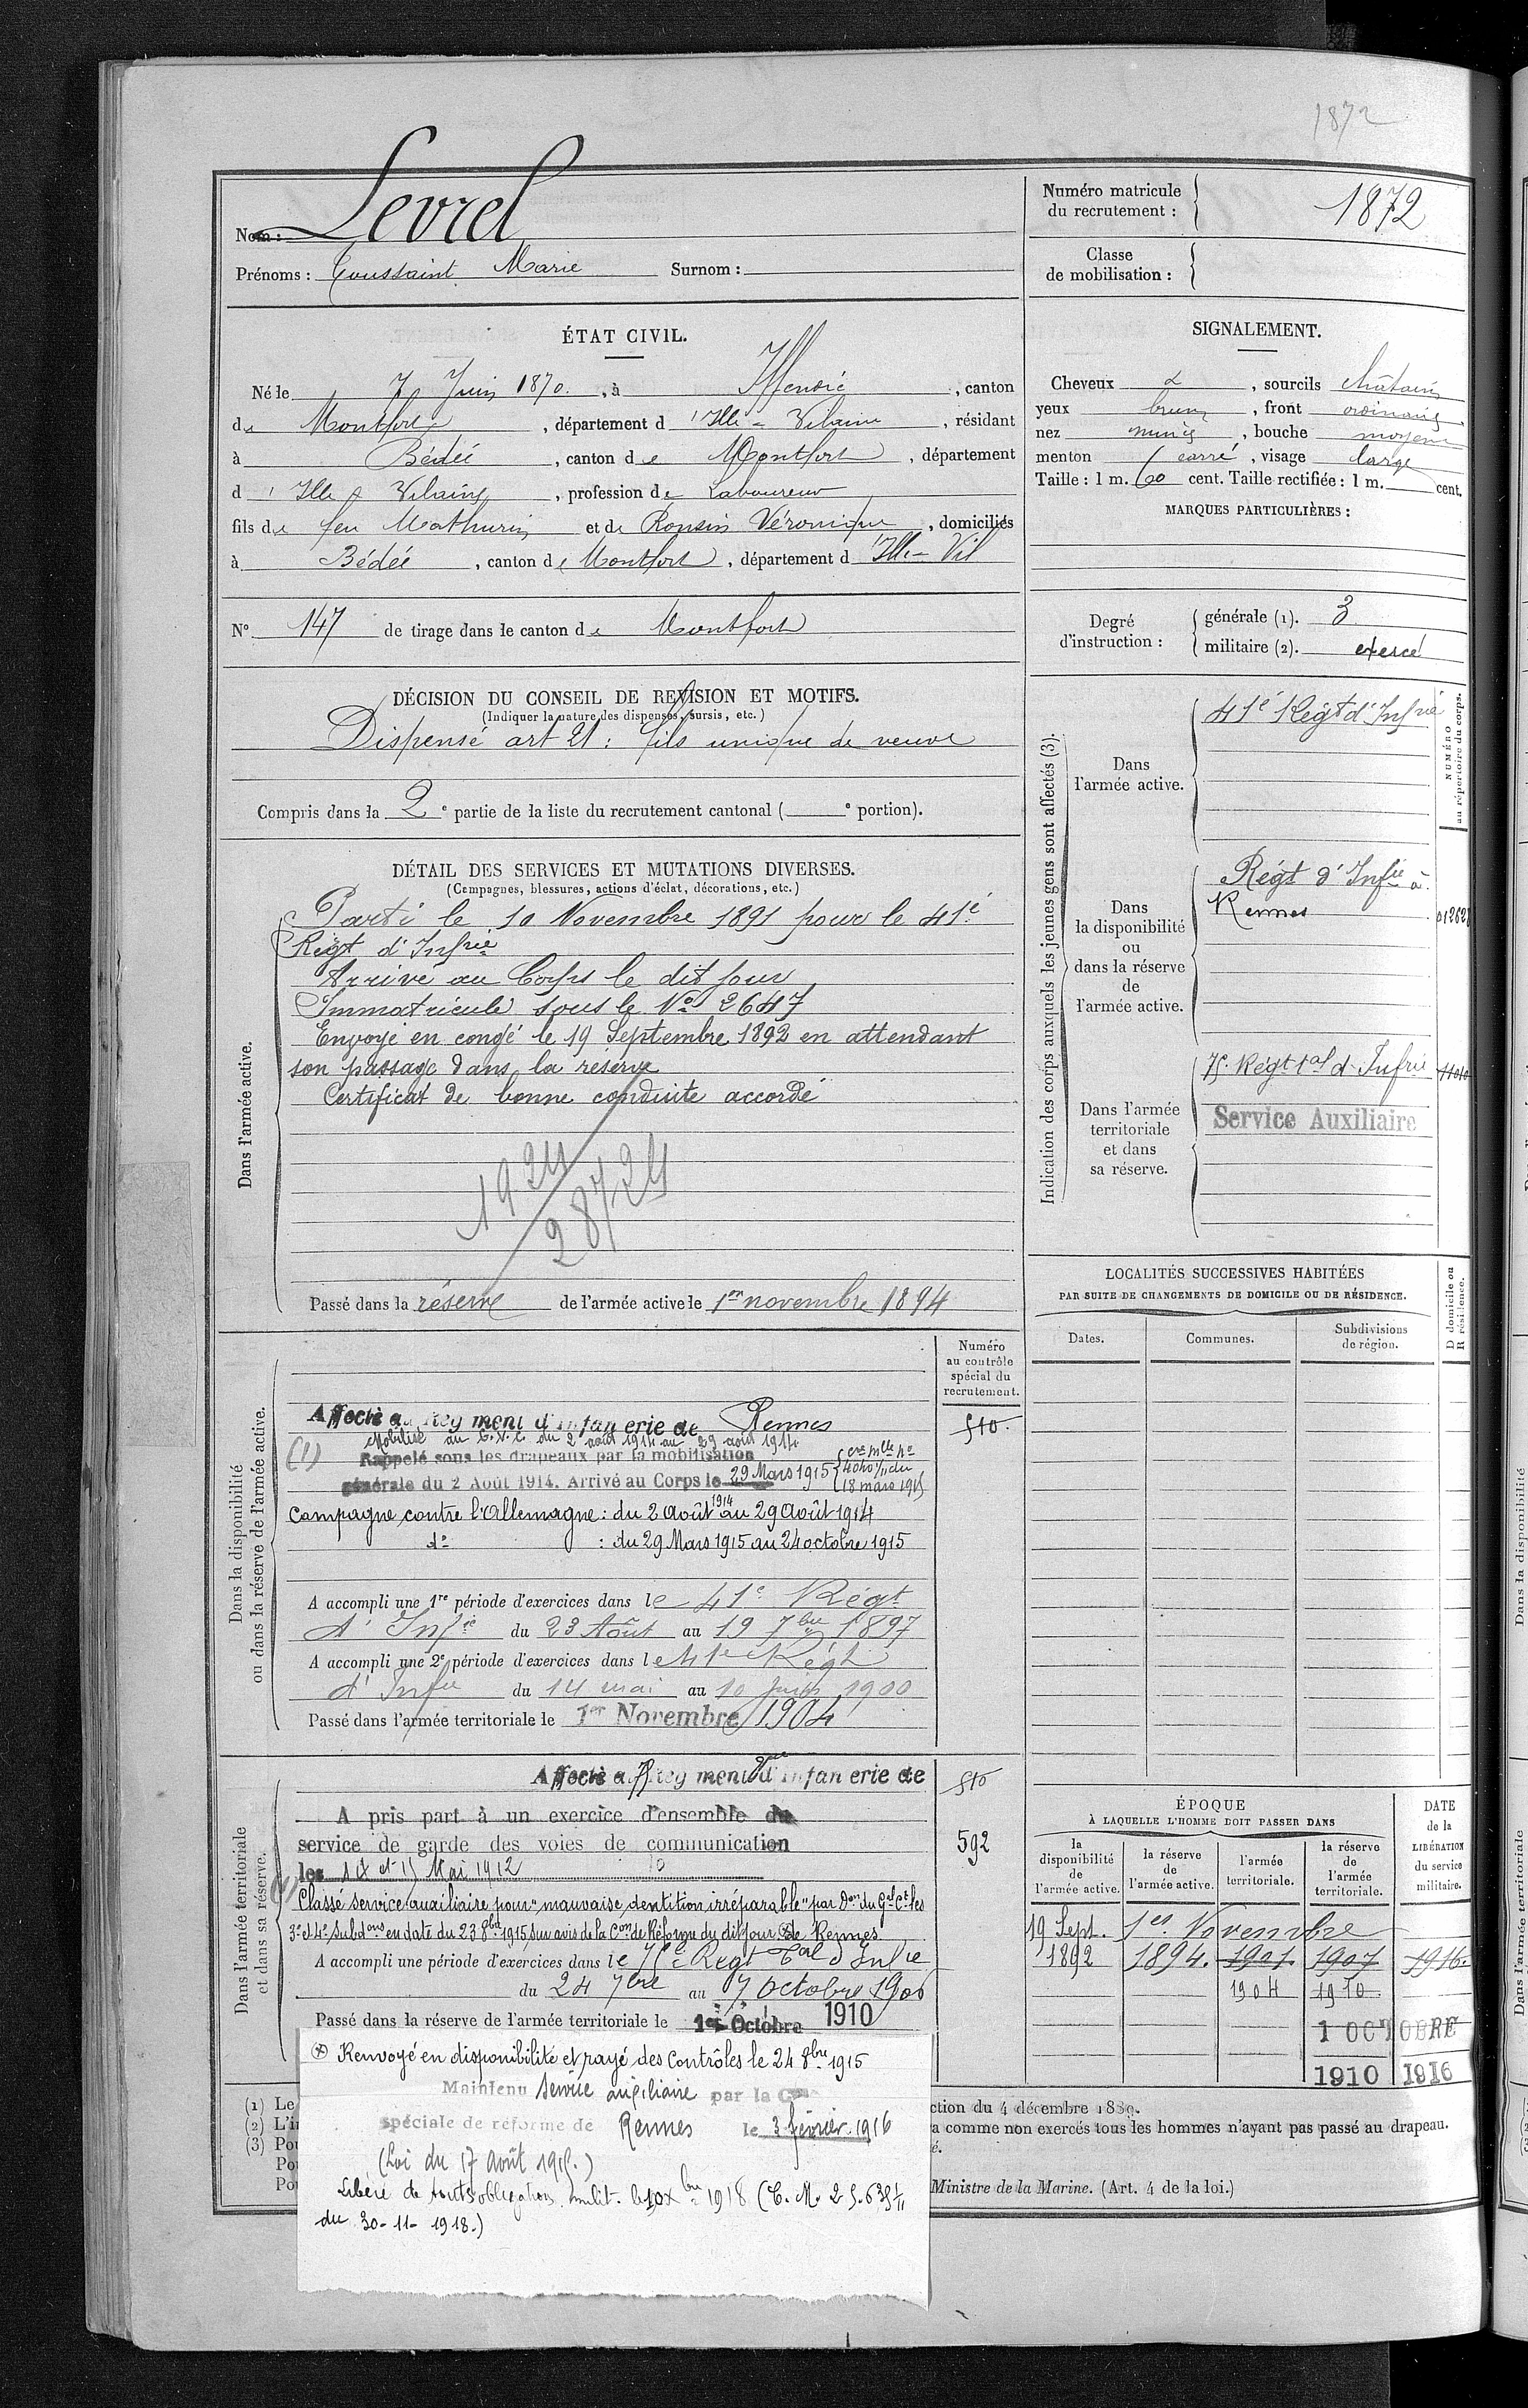 1872
Nom : Levrel
Prénoms : Toussaint Marie Surnom :
Numéro matricule
du recrutement :
1872
Classe
de mobilisation :
ÉTAT CIVIL.
Né le 7 Juin 1870, à Iffendic, canton
de Montfort, département d'Ille-Vilaine, résidant
à Bédée, canton de Montfort, département
d'Ille & Vilaine, profession de Laboureur
fils de feu Mathurin et de Ronsin Véronique, domiciliés
à Bédée, canton de Montfort, département d Ille-Vil
N° 147 de tirage dans le canton de Montfort
SIGNALEMENT.
Cheveux d, sourcils châtain
yeux bruns, front ordinaire
nez mince, bouche moyenne
menton carré, visage large
Taille : 1 m. 60 cent. Taille rectifiée : 1 m. cent.
MARQUES PARTICULIÈRES :
Degré
d'instruction :
générale (1). 3
militaire (2). exercé
DÉCISION DU CONSEIL DE REVISION ET MOTIFS.
(Indiquer la nature des dispenses, sursis, etc.)
Dispensé art 21 : fils unique de veuve
Compris dans la 2e partie de la liste du recrutement cantonal ( e portion).
DÉTAIL DES SERVICES ET MUTATIONS DIVERSES.
(Campagnes, blessures, actions d'éclat, décorations, etc.)
Dans l'armée active.
Parti le 10 Novembre 1891 pour le 41e
Régt d'Infrie
Arrivé au Corps le dit jour
Immatriculé sous le No 2647
Envoyé en congé le 19 Septembre 1892 en attendant
son passage dans la réserve
Certificat de bonne conduite accordé
1924
28724
Passé dans la réserve de l'armée active le 1er novembre 1894
Indication des corps auxquels les jeunes gens sont affectés (3).
NUMÉRO
au répertoire du corps.
Dans
l'armée active.
41e Régt d'Infrie
Dans
la disponibilité
ou
dans la réserve
de
l'armée active.
Régt d'Infie à
Rennes
Dans l'armée
territoriale
et dans
sa réserve.
75e Régt tal d'Infrie
Service Auxiliaire
LOCALITÉS SUCCESSIVES HABITÉES
PAR SUITE DE CHANGEMENTS DE DOMICILE OU DE RÉSIDENCE.
D domicile ou
R résidence.
Dates.
Communes.
Subdivisions
de région.
Dans la disponibilité
ou dans la réserve de l'armée active.
Numéro
au contrôle
spécial du
recrutement.
Affecté au Régiment d'Infanterie de Rennes
510.
Mobilisé au G.V.C. du 2 août 1914 au 29 août 1914
(1) Rappelé sous les drapeaux par la mobilisation
générale du 2 Août 1914. Arrivé au Corps le 29 Mars 1915
18 mars 1915
Campagne contre l'Allemagne : du 2 Août 1914 au 29 Août 1914
do : du 29 Mars 1915 au 24 octobre 1915
A accompli une 1re période d'exercices dans le 41e Régt
d'Infie du 23 Août au 19 7bre 1897
A accompli une 2e période d'exercices dans le 41e Régt
d'Infie du 14 mai au 10 juin 1900
Passé dans l'armée territoriale le 1er Novembre 1904
Dans l'armée territoriale
et dans sa réserve.
Affecté au Régiment d'Infanterie de
510
A pris part à un exercice d'ensemble du
service de garde des voies de communication
592
les 14 et 15 Mai 1912
Classé service auxiliaire pour "mauvaise dentition irréparable" par Don du Gal Ct les
3e et 4e Subdons en date du 23 8bre 1915, sur avis de la Con de Réforme du dit jour de Rennes
A accompli une période d'exercices dans le 75e Régt Tal d'Infie
du 24 7bre au 7 Octobre 1906
Passé dans la réserve de l'armée territoriale le 1er Octobre 1910
Renvoyé en disponibilité et rayé des Contrôles le 24 8bre 1915
Maintenu service auxiliaire par la Con
spéciale de réforme de Rennes le 3 février 1916
(Loi du 17 Août 1915.)
Libéré de toutes obligations milit. le 10 Xbre 1918 (C. M. 25.635 1/11
du 30-11-1918.)
ÉPOQUE
À LAQUELLE L'HOMME DOIT PASSER DANS
DATE
de la
LIBÉRATION
du service
militaire.
la
disponibilité
de
l'armée active.
la réserve
de
l'armée active.
l'armée
territoriale.
la réserve
de
l'armée
territoriale.
19 Sept. 1er Novembre
1892 1894. 1901 1907 1916.
1904 1910
1 OCTOBRE
1910 1916
(1) Le
(2) L'i
(3) Po
Po
Po
ction du 4 décembre 1889.
a comme non exercés tous les hommes n'ayant pas passé au drapeau.
é.
Ministre de la Marine. (Art. 4 de la loi.)
Dans la disponibilité
Dans l'armée territoriale